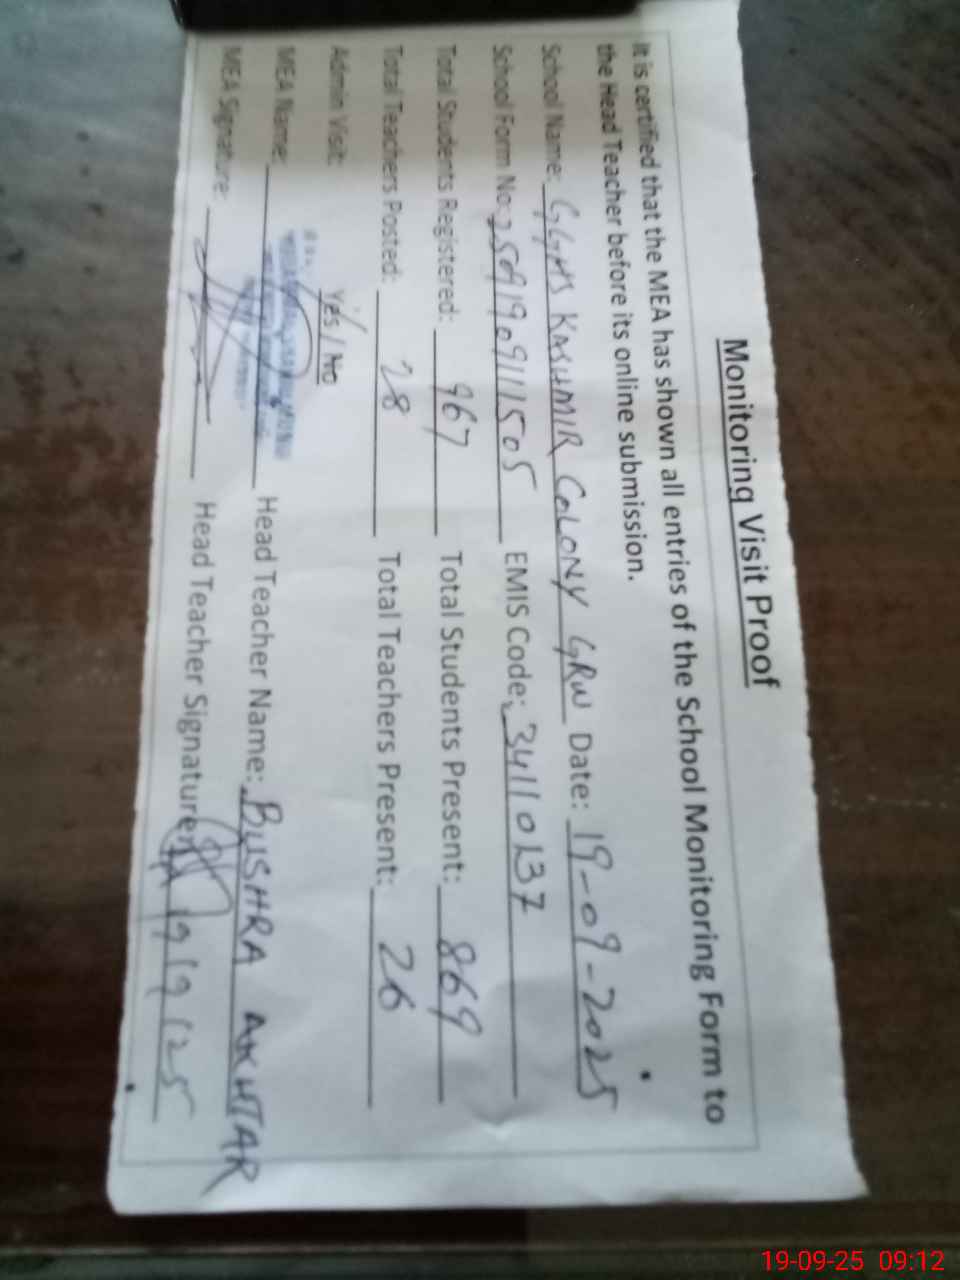 Monitoring Visit Proof
It is certified that the MEA has shown all entries of the School Monitoring Form to
the Head Teacher before its online submission.
School Name: GGHS KASHMIR COLONY GRW Date: 19-09-2025
School Form No: 2509190911505 EMIS Code: 34110137
Total Students Registered: 967 Total Students Present: 869
Total Teachers Posted: 28 Total Teachers Present: 26
Admin Visit: Yes / No
MEA Name: Head Teacher Name: BUSHRA AKHTAR
MEA Signature: Head Teacher Signature: 19/9/25
19-09-25 09:12